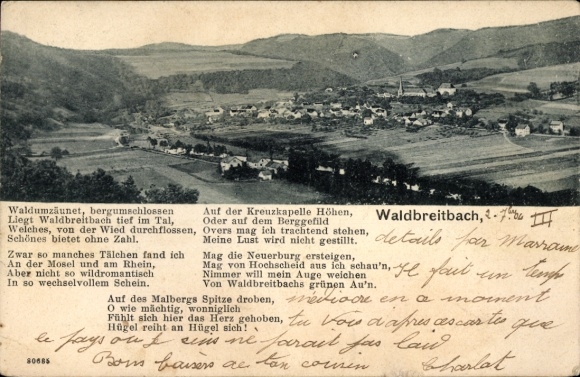 Waldumzäunet, bergumschlossen
Liegt Waldbreitbach tief im Tal,
Welches, von der Wied durchflossen,
Schönes bietet ohne Zahl.
Zwar so manches Tälchen fand ich
An der Mosel und am Rhein,
Aber nicht so wildromantisch
In so wechselvollem Schein.
Auf der Kreuzkapelle Höhen,
Oder auf dem Berggefild
Overs mag ich trachtend stehen,
Meine Lust wird nicht gestillt.
Mag die Neuerburg ersteigen,
Mag von Hochscheid aus ich schau'n,
Nimmer will mein Auge weichen
Von Waldbreitbachs grünen Au'n.
Auf des Malbergs Spitze droben,
O wie mächtig, wonniglich
Fühlt sich hier das Herz gehoben,
Hügel reiht an Hügel sich!
Waldbreitbach,
III
details par
Il fait un temps
médiocre en ce moment
tu vois d'apres ces cartes que
le pays où je suis ne parait pas laid
Bons baisers de ton cousin Charlot
80685